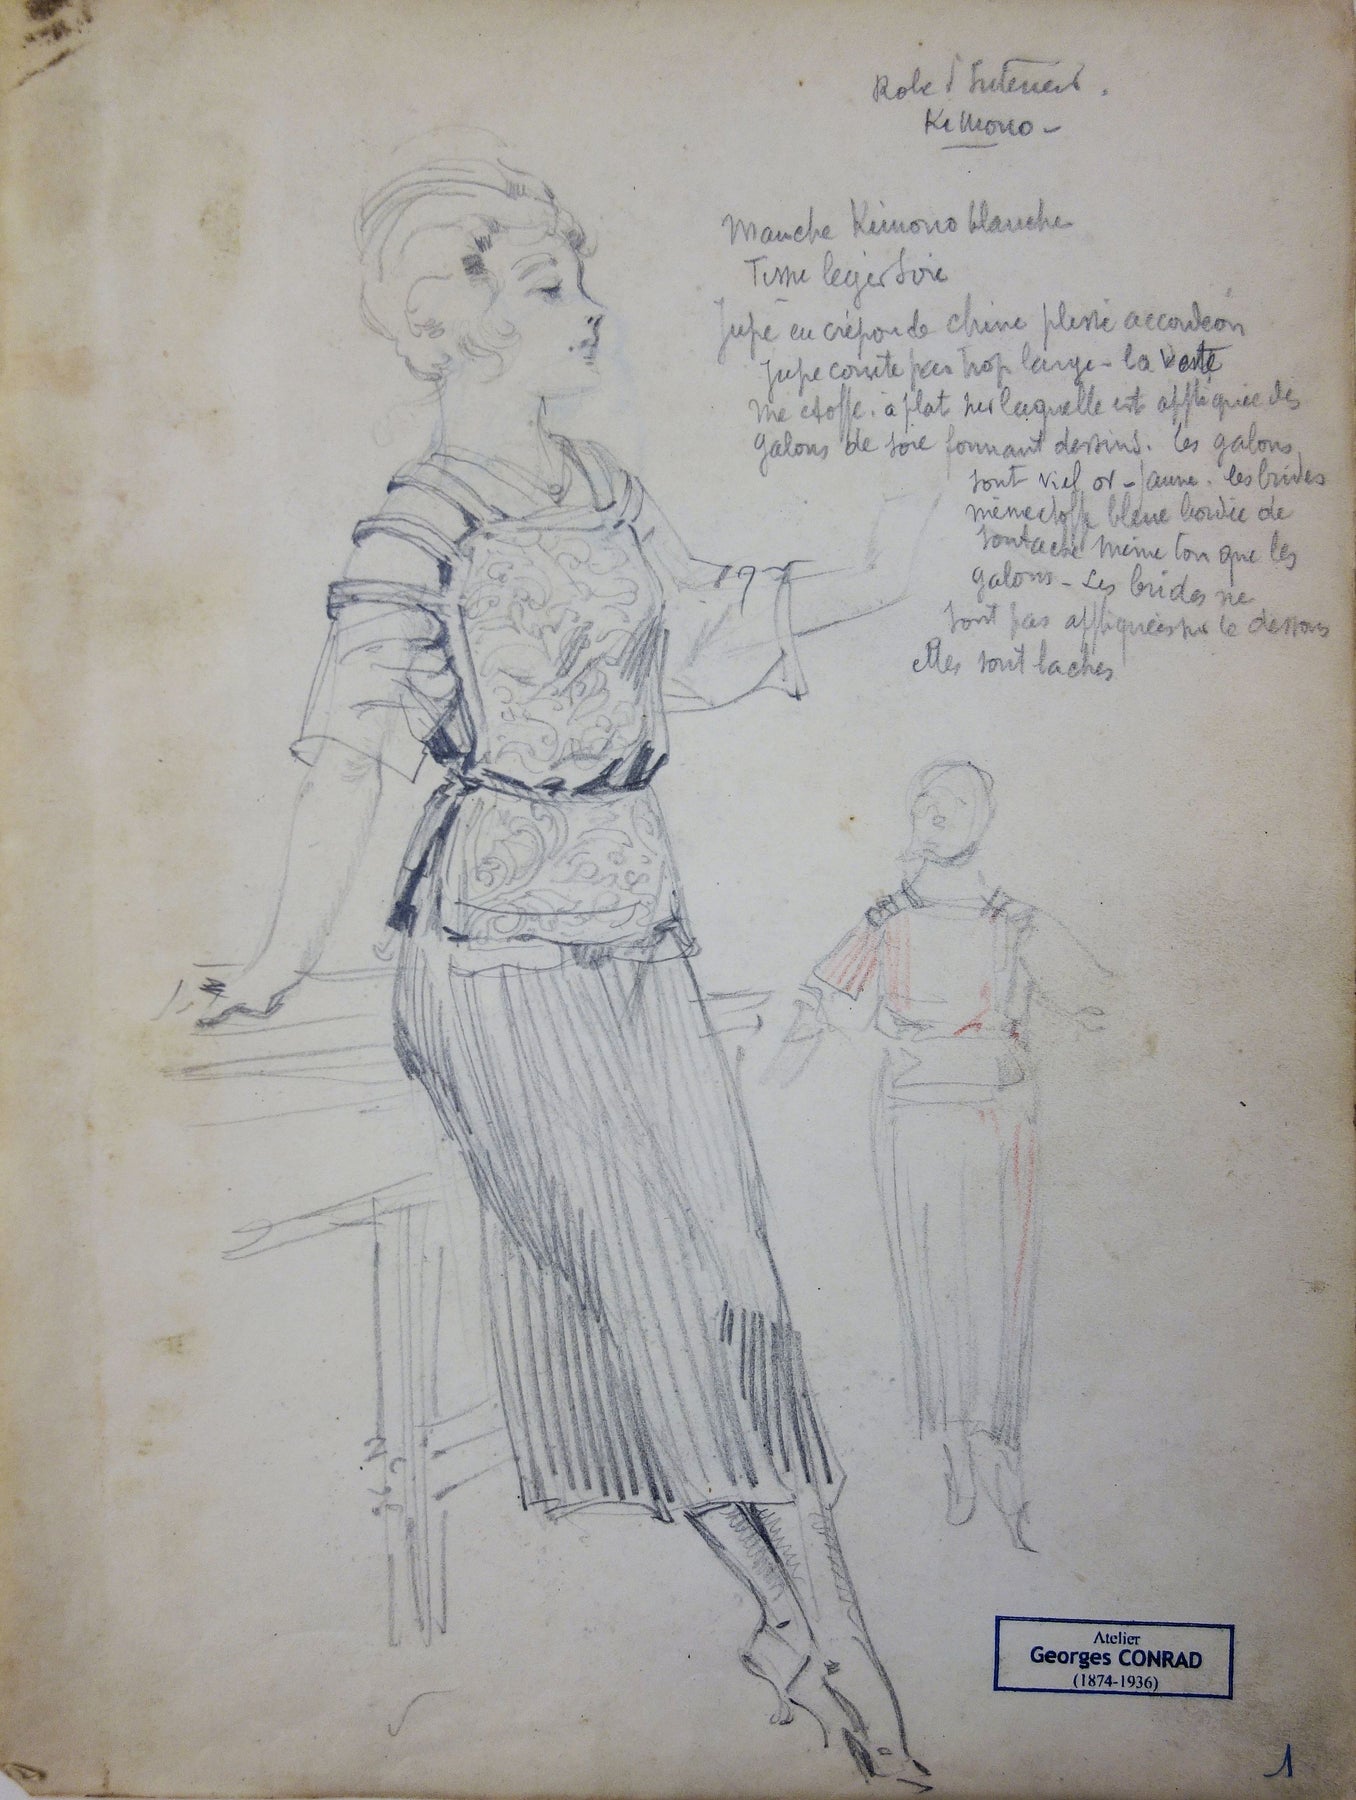 Robe d'Intérieur.
Kimono -
Manche Kimono blanche
Tissu leger Soie
Jupe en crépon de chine plissé accordéon
Jupe courte pas trop large - la veste
étoffe. à plat sur laquelle est appliquée des
galons de soie formant dessins. les galons
sont vieil or - jaune. les brides
même étoffe bleue bordée de
soutache même ton que les
galons - Les brides ne
sont pas appliquées sur le dessous
elles sont laches
Atelier
Georges CONRAD
(1874-1936)
1